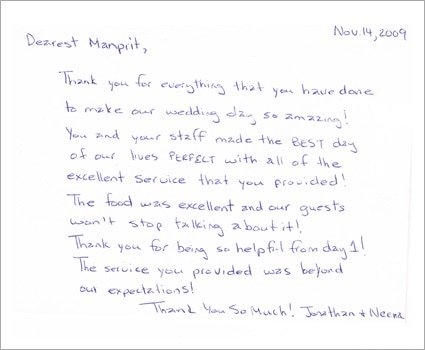 Nov. 14, 2009
Dearest Manprit,
Thank you for everything that you have done
to make our wedding day so amazing!
You and your staff made the BEST day
of our lives PERFECT with all of the
excellent service that you provided!
The food was excellent and our guests
won't stop talking about it!
Thank you for being so helpful from day 1!
The service you provided was beyond
our expectations!
Thank You So Much! Jonathan + Neena